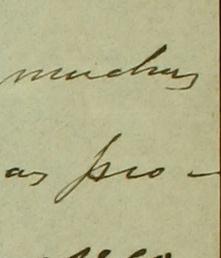 muchas
as pro-